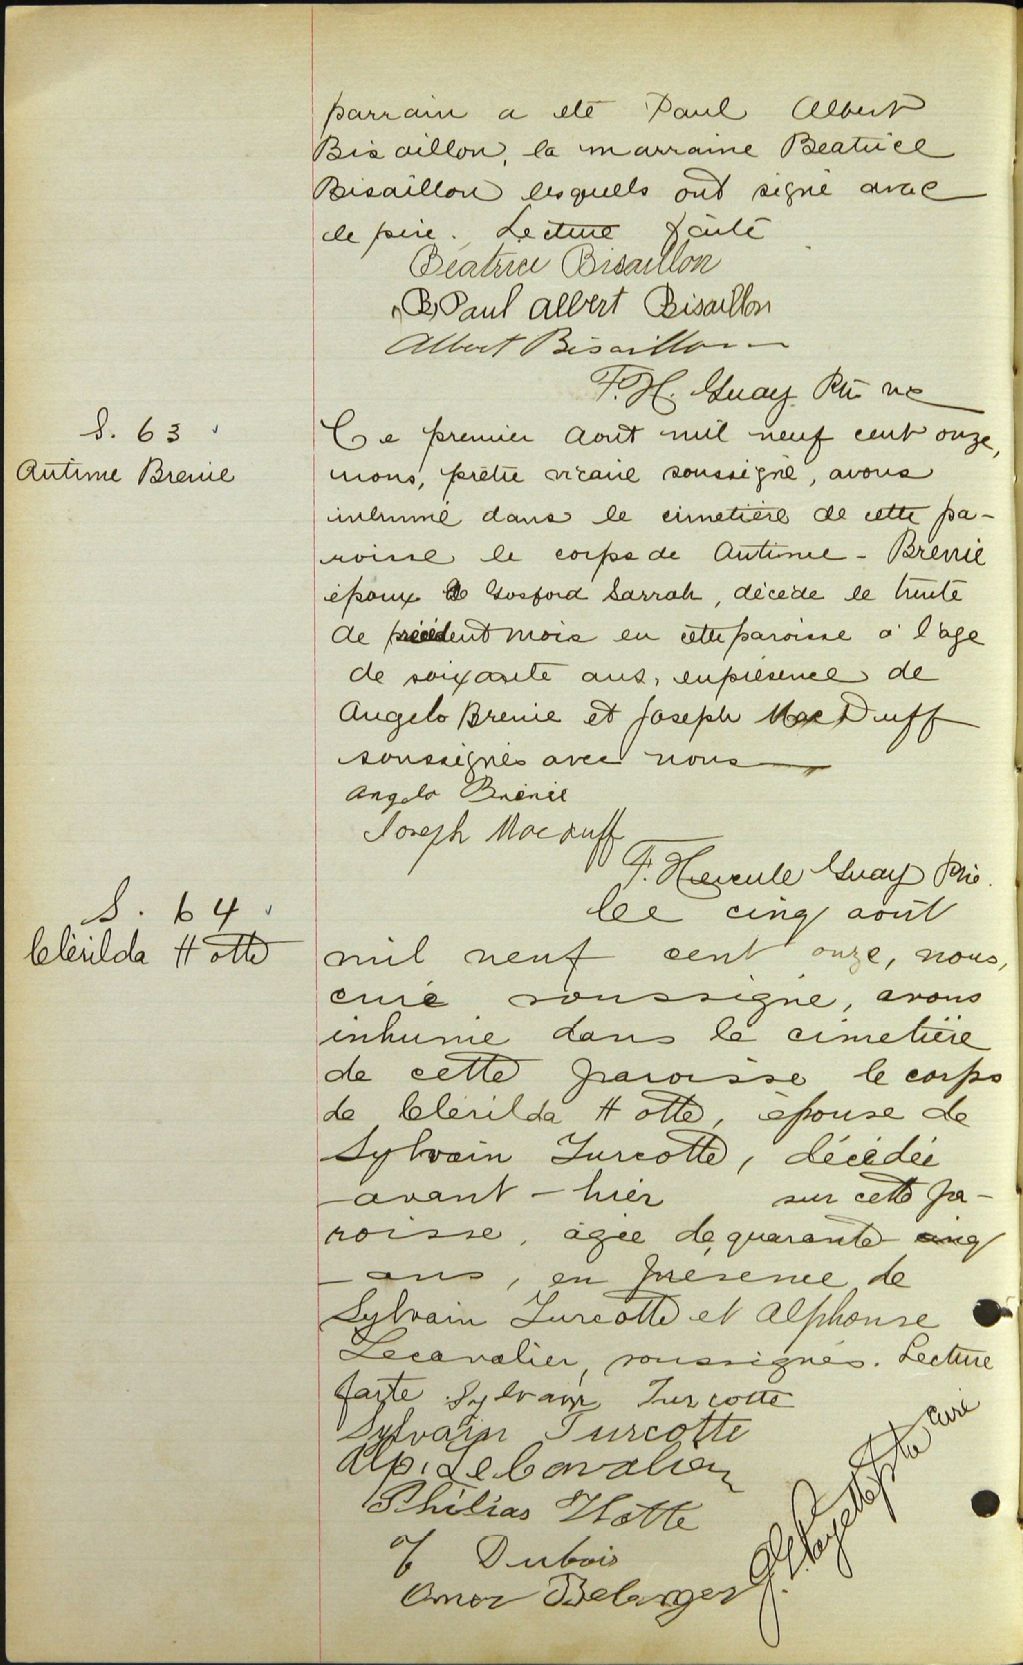 parrain a été Paul Albert
Bisaillon, la marraine Beatrice
Bisaillon lesquels ont signé avec
le père. Lecture faite
Béatrice Bisaillon
Paul Albert Bisaillon
Albert Bisaillon
F. H. Guay Ptre vic
S. 63
Antime Brenie
Ce premier Aout mil neuf cent onze,
nous, prêtre vicaire soussigné, avons
inhumé dans le cimetière de cette pa-
roisse le corps de Antime - Brenie
époux de Gosford Sarrah, décédé le trente
de précédent mois en cette paroisse a l'age
de soixante ans, en présence de
Angelo Brenie et Joseph MacDuff
soussignés avec nous
Angelo Brénie
Joseph Macduff
F. Hercule Guay Ptre.
S. 64
Clérilda Hotte
Ce cinq août
mil neuf cent onze, nous,
curé soussigné, avons
inhumé dans le cimetière
de cette paroisse le corps
de Clérilda Hotte, épouse de
Sylvain Turcotte, décédée
avant-hier sur cette pa-
roisse, agée de quarante cinq
ans, en présence de
Sylvain Turcotte et Alphonse
Lecavalier, soussignés. Lecture
faite Sylvain Turcotte
Sylvain Turcotte
Alp. LeCavalier
Philias Hotte
Dubois
Omer Belanger
J. E. Payette ptre curé